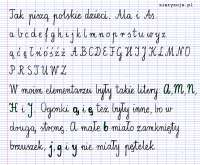 szaryooje.pl
Tak piszą polskie dzieci. Ala i As.
a b c d e f g h i j k l m n o p r s t u w y z
ą ć ę ł ń ó ś ź ż A B C D E F G H I J K L M N O
P R S T U W Z
W moim elementarzu były takie litery: A, M, N,
H i J. Ogonki ą i ę też były inne, bo w
drugą stronę. A małe b miało zamknięty
brzuszek, j, g i y nie miały pętelek.